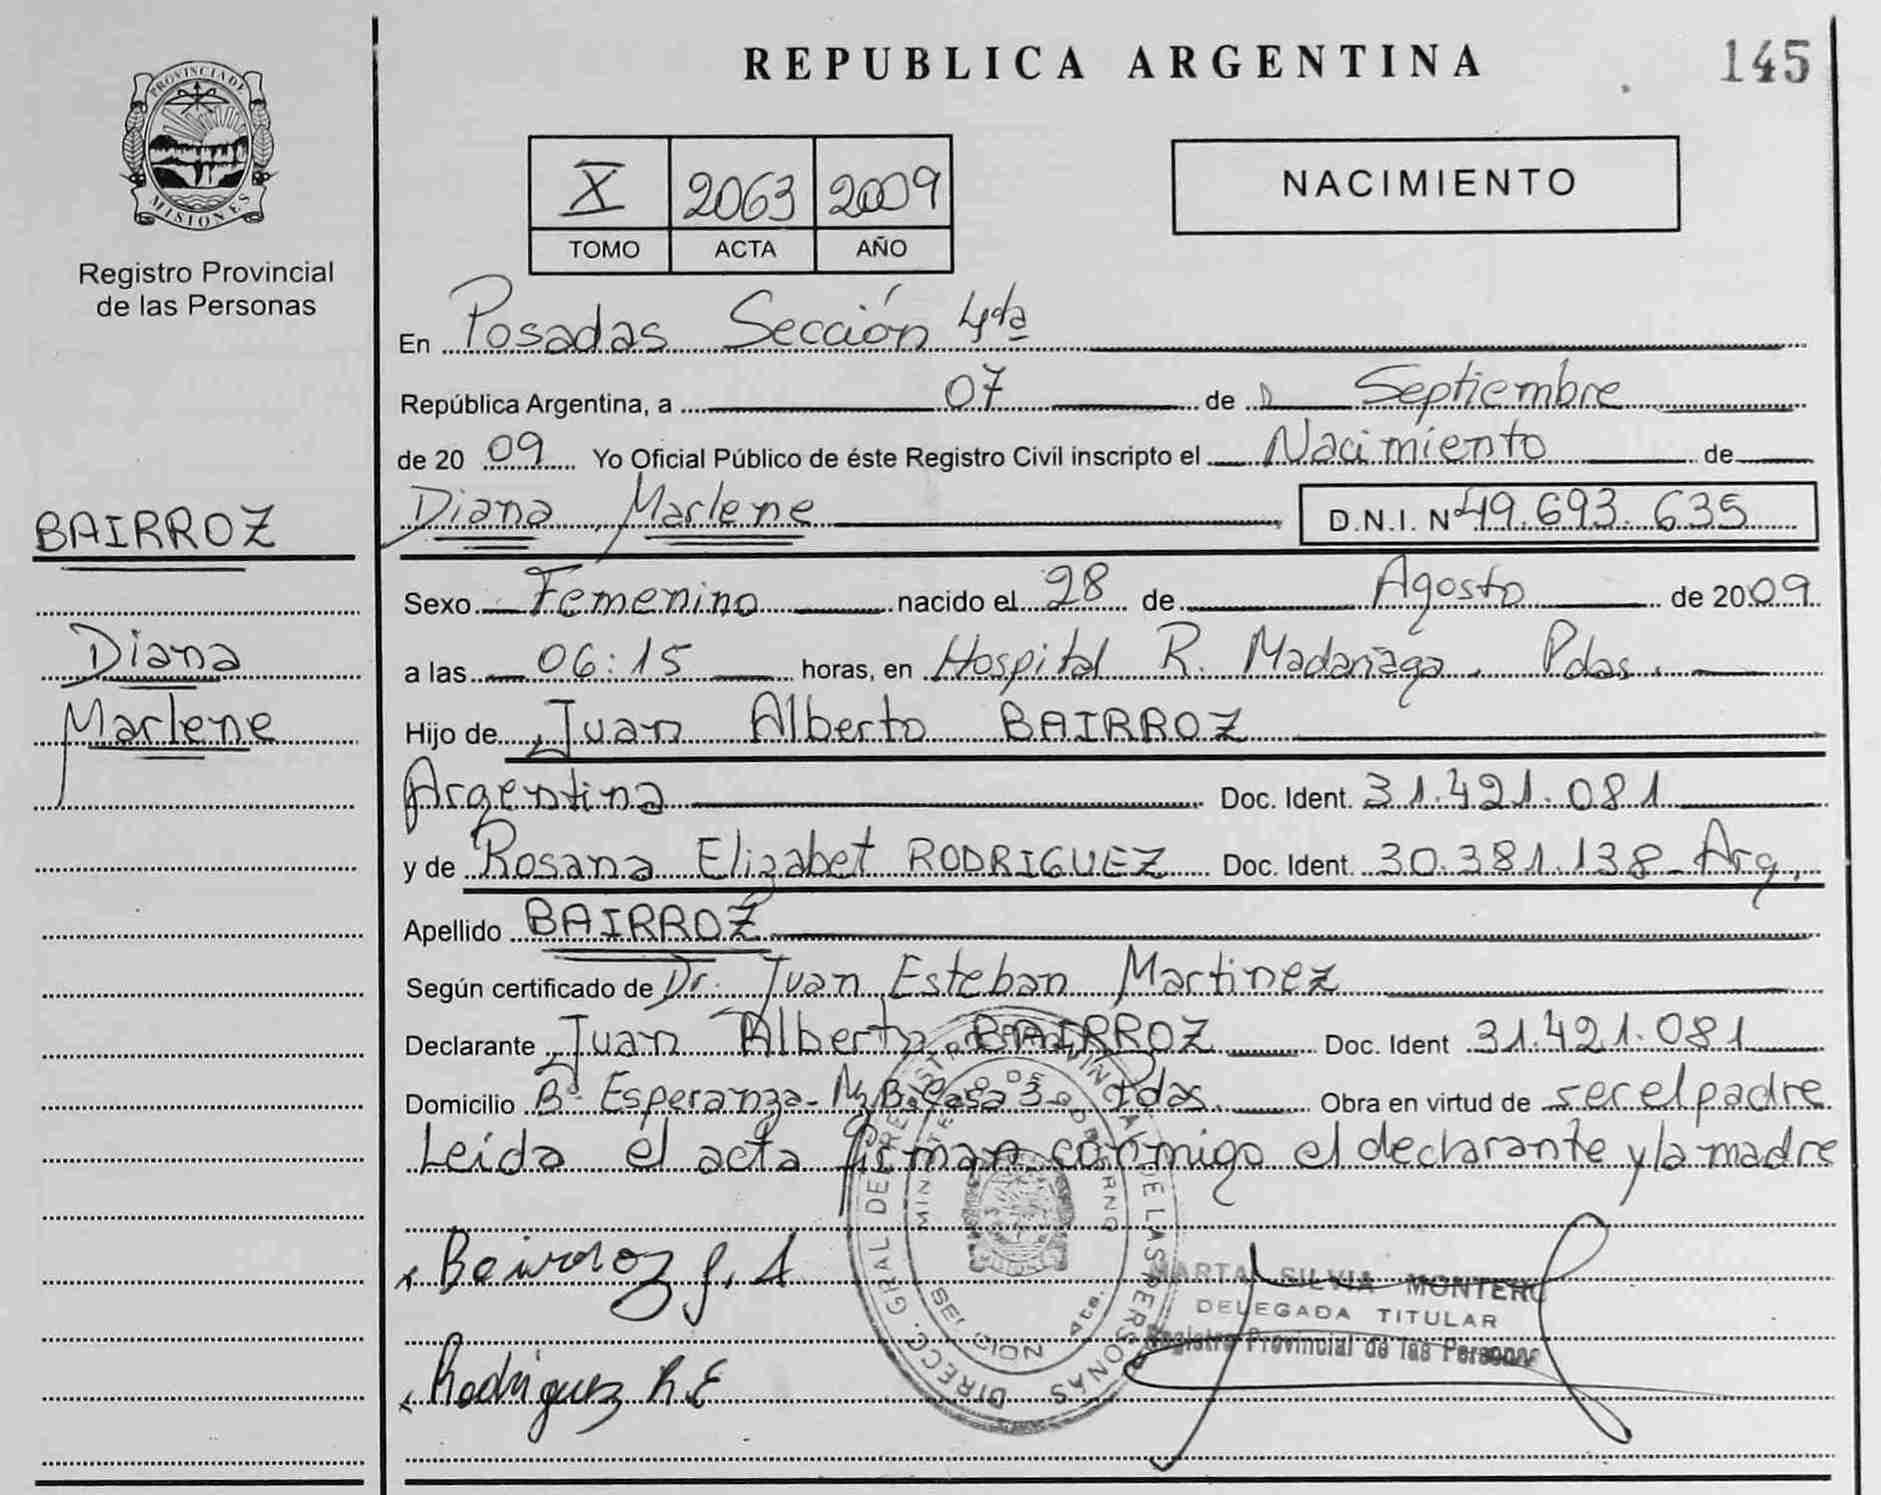 REPUBLICA ARGENTINA
145
PROVINCIA DE
MISIONES
Registro Provincial
de las Personas
X 2063 2009
TOMO ACTA AÑO
NACIMIENTO
En Posadas Sección 4ta
República Argentina, a 07 de Septiembre
de 2009 Yo Oficial Público de éste Registro Civil inscripto el Nacimiento de
Diana Marlene D.N.I. Nº 49.693.635
BAIRROZ
Diana
Marlene
Sexo Femenino nacido el 28 de Agosto de 2009
a las 06:15 horas, en Hospital R. Madariaga. Pdas.
Hijo de Juan Alberto BAIRROZ
Argentina Doc. Ident. 31.421.081
y de Rosana Elizabet RODRIGUEZ Doc. Ident. 30.381.138 - Arg.
Apellido BAIRROZ
Según certificado de Dr. Juan Esteban Martinez
Declarante Juan Alberto BAIRROZ Doc. Ident 31.421.081
Domicilio Bº Esperanza - Mz B. Casa 3 - Pdas. Obra en virtud de ser el padre
Leida el acta firman conmigo el declarante y la madre
Bairroz J. A
Rodriguez R.E
DIRECC. GRAL DE REGISTRO PROVINCIAL DE LAS PERSONAS
MINISTERIO DE GOBIERNO
SECCION 4ta.
MARTA SILVIA MONTERO
DELEGADA TITULAR
Registro Provincial de las Personas